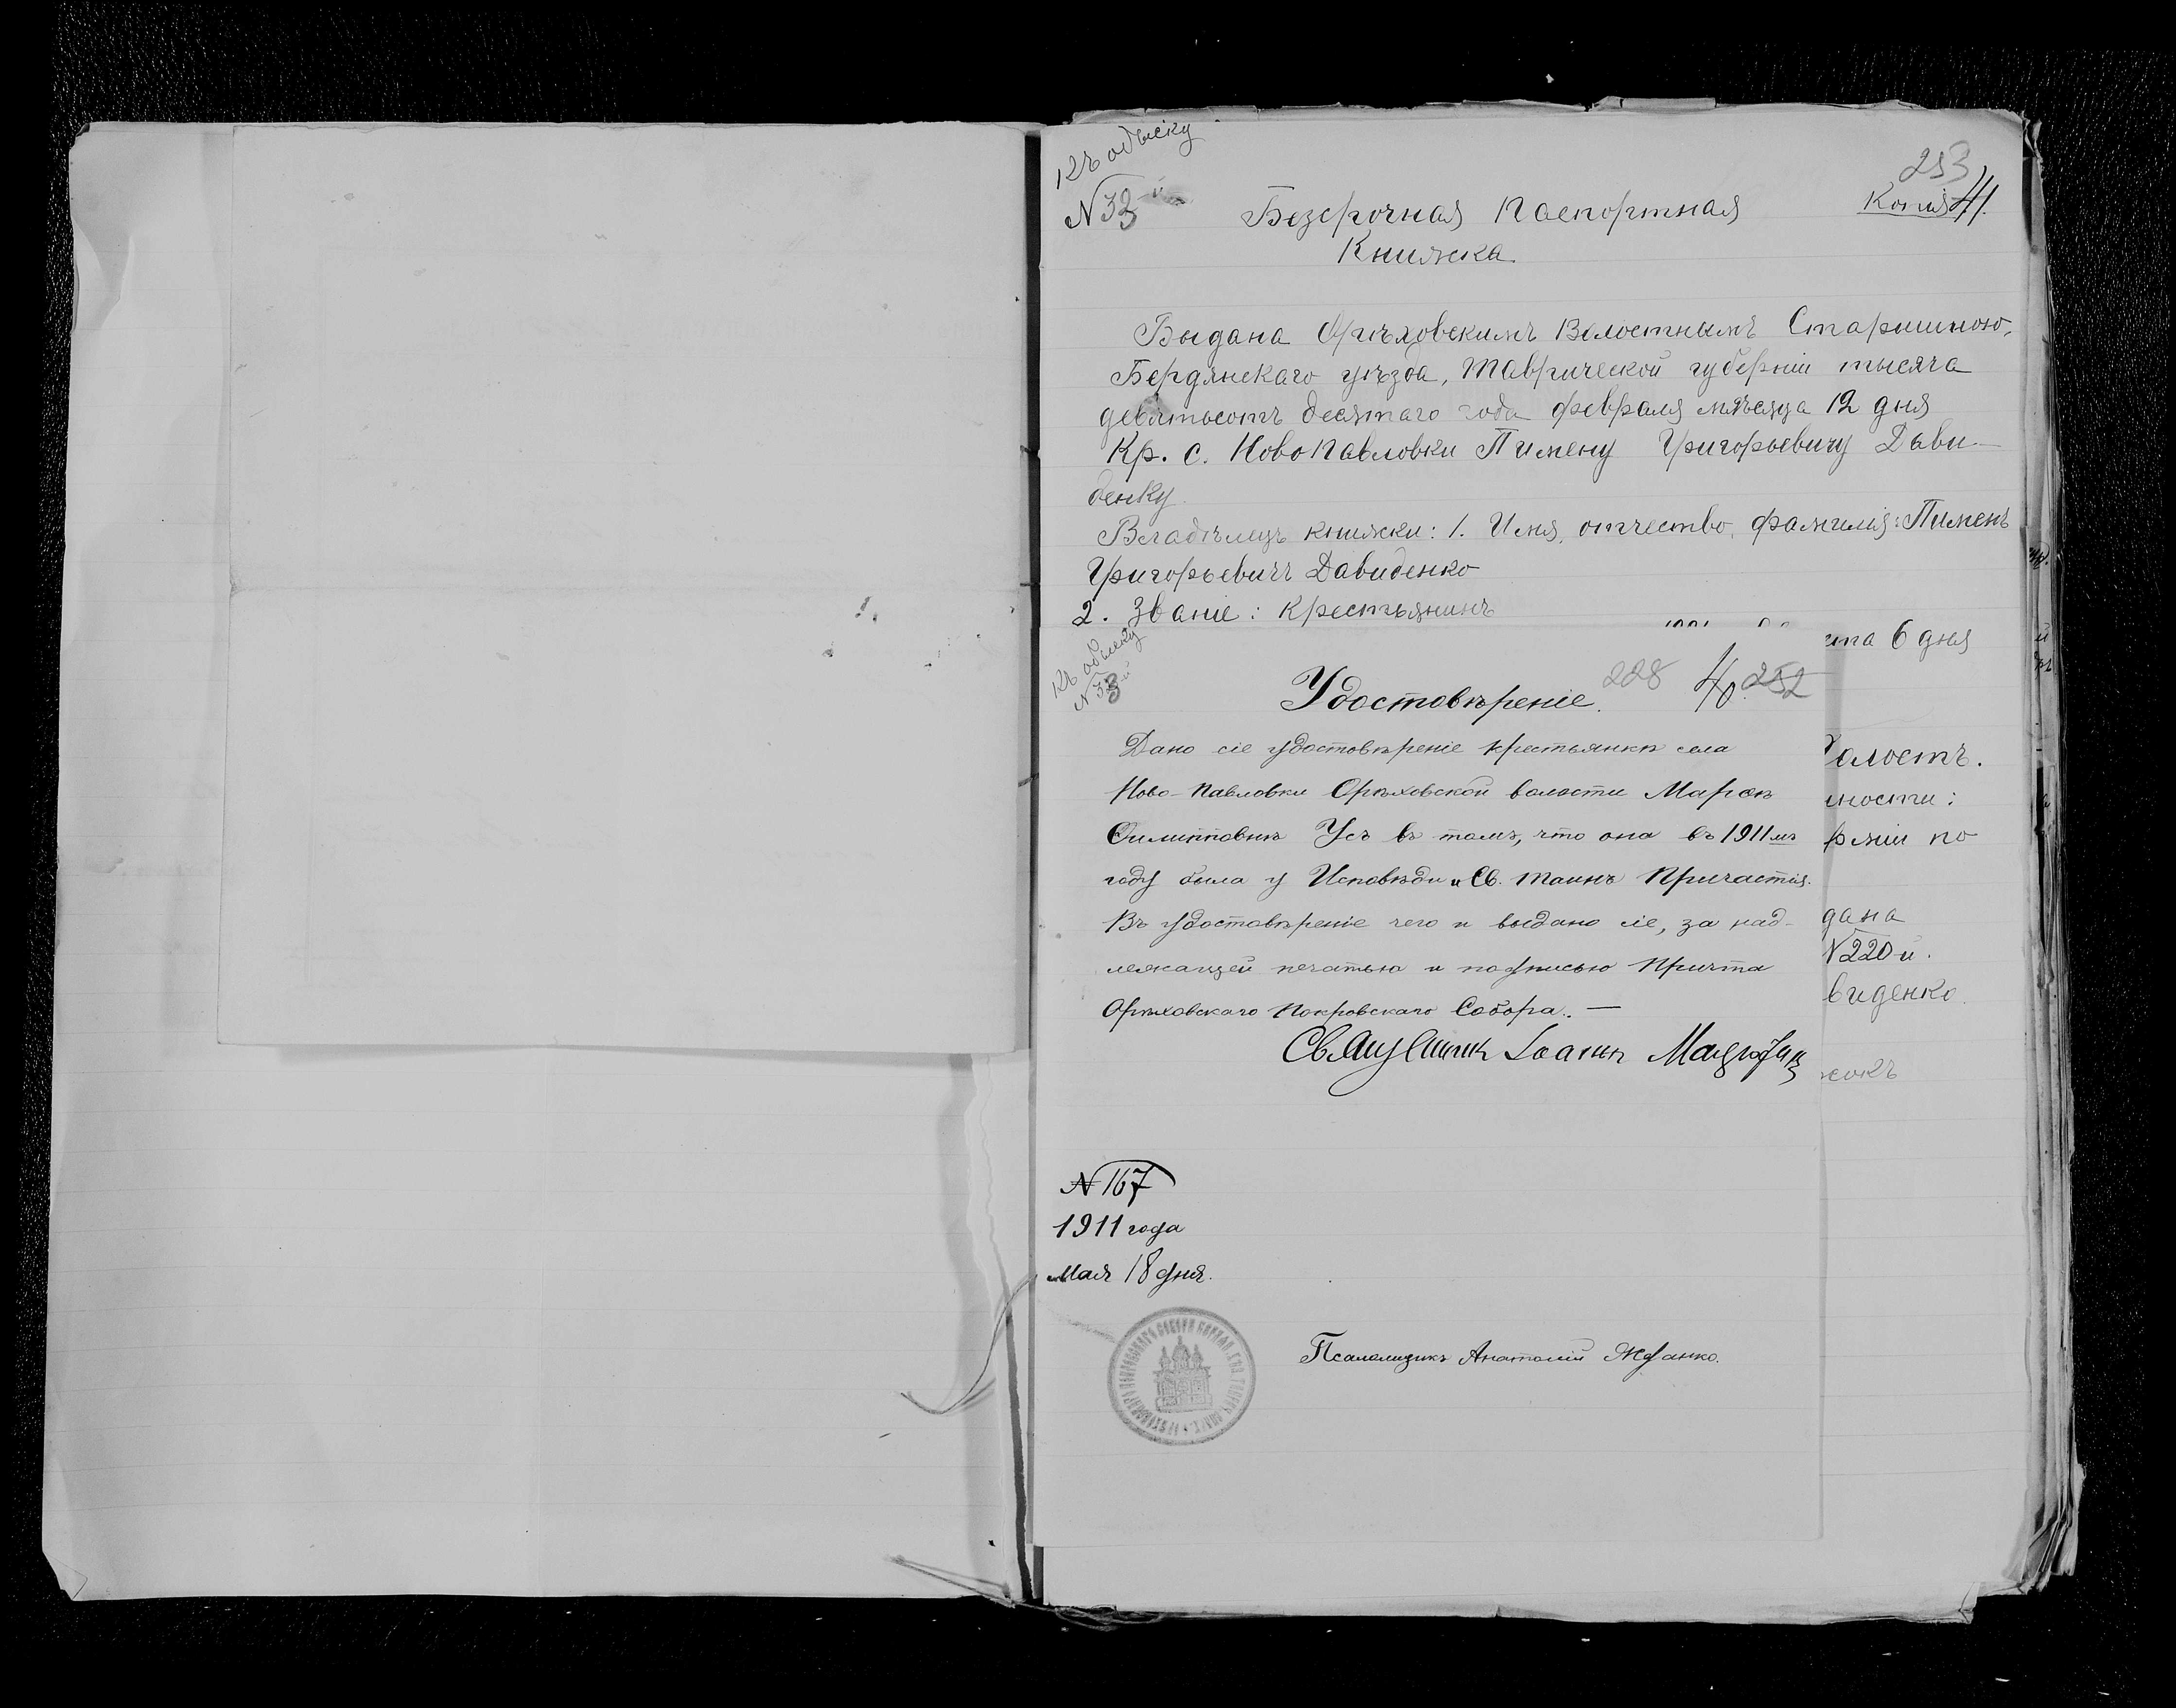 Къ обыску
№ 33й
253
Копія 41.
Безсрочная Паспортная
Книжка
Выдана Орѣховскимъ Волостнымъ Старшиною,
Бердянскаго уѣзда, Таврической губерніи тысяча
девятьсотъ десятаго года февраля мѣсяца 12 дня
Кр. с. НовоПавловки Пимену Григорьевичу Дави-
денку
Владѣлецъ книжки: 1. Имя, отчество, фамилія: Пименъ
Григорьевичъ Давиденко
2. Званіе: Крестьянинъ
6 дня
Къ обыску
№ 33й
228 40. 252
Удостовѣреніе.
Дано сіе удостовѣреніе крестьянкѣ села
Ново-Павловки Орѣховской волости Марѳѣ
Филипповнѣ Усъ въ томъ, что она въ 1911 мъ
году была у Исповѣди и Св. Таинъ Причастія.
Въ удостовѣреніе чего и выдано сіе, за над-
лежащей печатью и подписью Причта
Орѣховскаго Покровскаго Собора. —
Священникъ Іоаннъ
олость.
ности:
рміи по
дана
№ 220 й.
виденко.
жокъ
№ 167
1911 года
Мая 18 дня.
Псаломщикъ Анатолій Жданко.